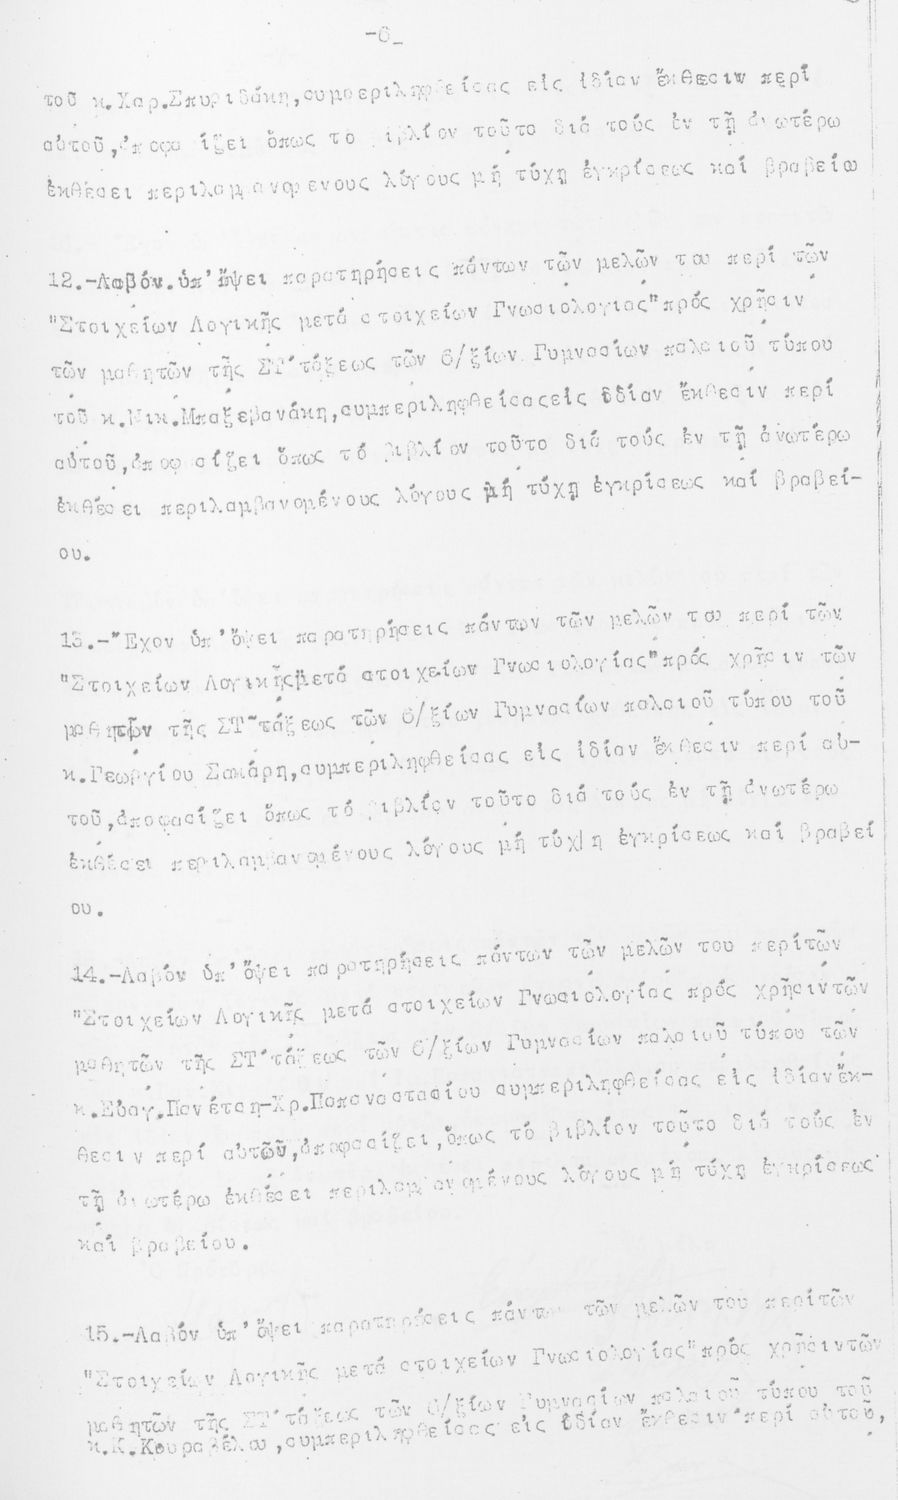 -6_
τοῦ κ.Χαρ.Σπυριδάκη,συμπεριληφθείσας εἰς ἰδίαν ἔκθεσιν περί
αὐτοῦ,ἀποφα ίζει ὅπως τό βιβλίον τοῦτο διά τούς ἐν τῇ ἀνωτέρω
ἐκθέσει περιλαμβανομένους λόγους μή τύχῃ ἐγκρίσεως καί βραβείω
12.-Λαβόν.ὑπ'ὄψει παρατηρήσεις πάντων τῶν μελῶν του περί τῶν
"Στοιχείων Λογικῆς μετά στοιχείων Γνωσιολογίας"πρός χρῆσιν
τῶν μαθητῶν τῆς ΣΤ'τάξεως τῶν 6/ξίων Γυμνασίων παλαιοῦ τύπου
τοῦ κ.Νικ.Μπαξεβανάκη,συμπεριληφθείσαςεἰς ἰδίαν ἔκθεσιν περί
αὐτοῦ,ἀποφασίζει ὅπως τό βιβλίον τοῦτο διά τούς ἐν τῇ ἀνωτέρω
ἐκθέσει περιλαμβανομένους λόγους μή τύχῃ ἐγκρίσεως καί βραβεί-
ου.
13.-Ἔχον ὑπ'ὄψει παρατηρήσεις πάντων τῶν μελῶν του περί τῶν
"Στοιχείων Λογικῆς μετά στοιχείων Γνωσιολογίας"πρός χρῆσιν τῶν
μαθητῶν τῆς ΣΤ'τάξεως τῶν 6/ξίων Γυμνασίων παλαιοῦ τύπου τοῦ
κ.Γεωργίου Σακάρη,συμπεριληφθείσας εἰς ἰδίαν ἔκθεσιν περί αὐ-
τοῦ,ἀποφασίζει ὅπως τό βιβλίον τοῦτο διά τούς ἐν τῇ ἀνωτέρω
ἐκθέσει περιλαμβανομένους λόγους μή τύχῃ ἐγκρίσεως καί βραβεί
ου.
14.-Λαβόν ὑπ'ὄψει παρατηρήσεις πάντων τῶν μελῶν του περίτῶν
"Στοιχείων Λογικῆς μετά στοιχείων Γνωσιολογίας πρός χρῆσιντῶν
μαθητῶν τῆς ΣΤ'τάξεως τῶν 6/ξίων Γυμνασίων παλαιοῦ τύπου τῶν
κ.Εὐαγ.Πανέτση-Χρ.Παπαναστασίου συμπεριληφθείσας εἰς ἰδίανἔκ-
θεσιν περί αὐτῶν,ἀποφασίζει,ὅπως τό βιβλίον τοῦτο διά τούς ἐν
τῇ ἀνωτέρω ἐκθέσει περιλαμβανομένους λόγους μή τύχῃ ἐγκρίσεως
καί βραβείου.
15.-Λαβόν ὑπ'ὄψει παρατηρήσεις πάντων τῶν μελῶν του περίτῶν
"Στοιχείων Λογικῆς μετά στοιχείων Γνωσιολογίας"πρός χρῆσιντῶν
μαθητῶν τῆς ΣΤ'τάξεως τῶν 6/ξίων Γυμνασίων παλαιοῦ τύπου τοῦ
κ.Κ.Κουραβέλου,συμπεριληφθείσας εἰς ἰδίαν ἔκθεσιν περί αὐτοῦ,